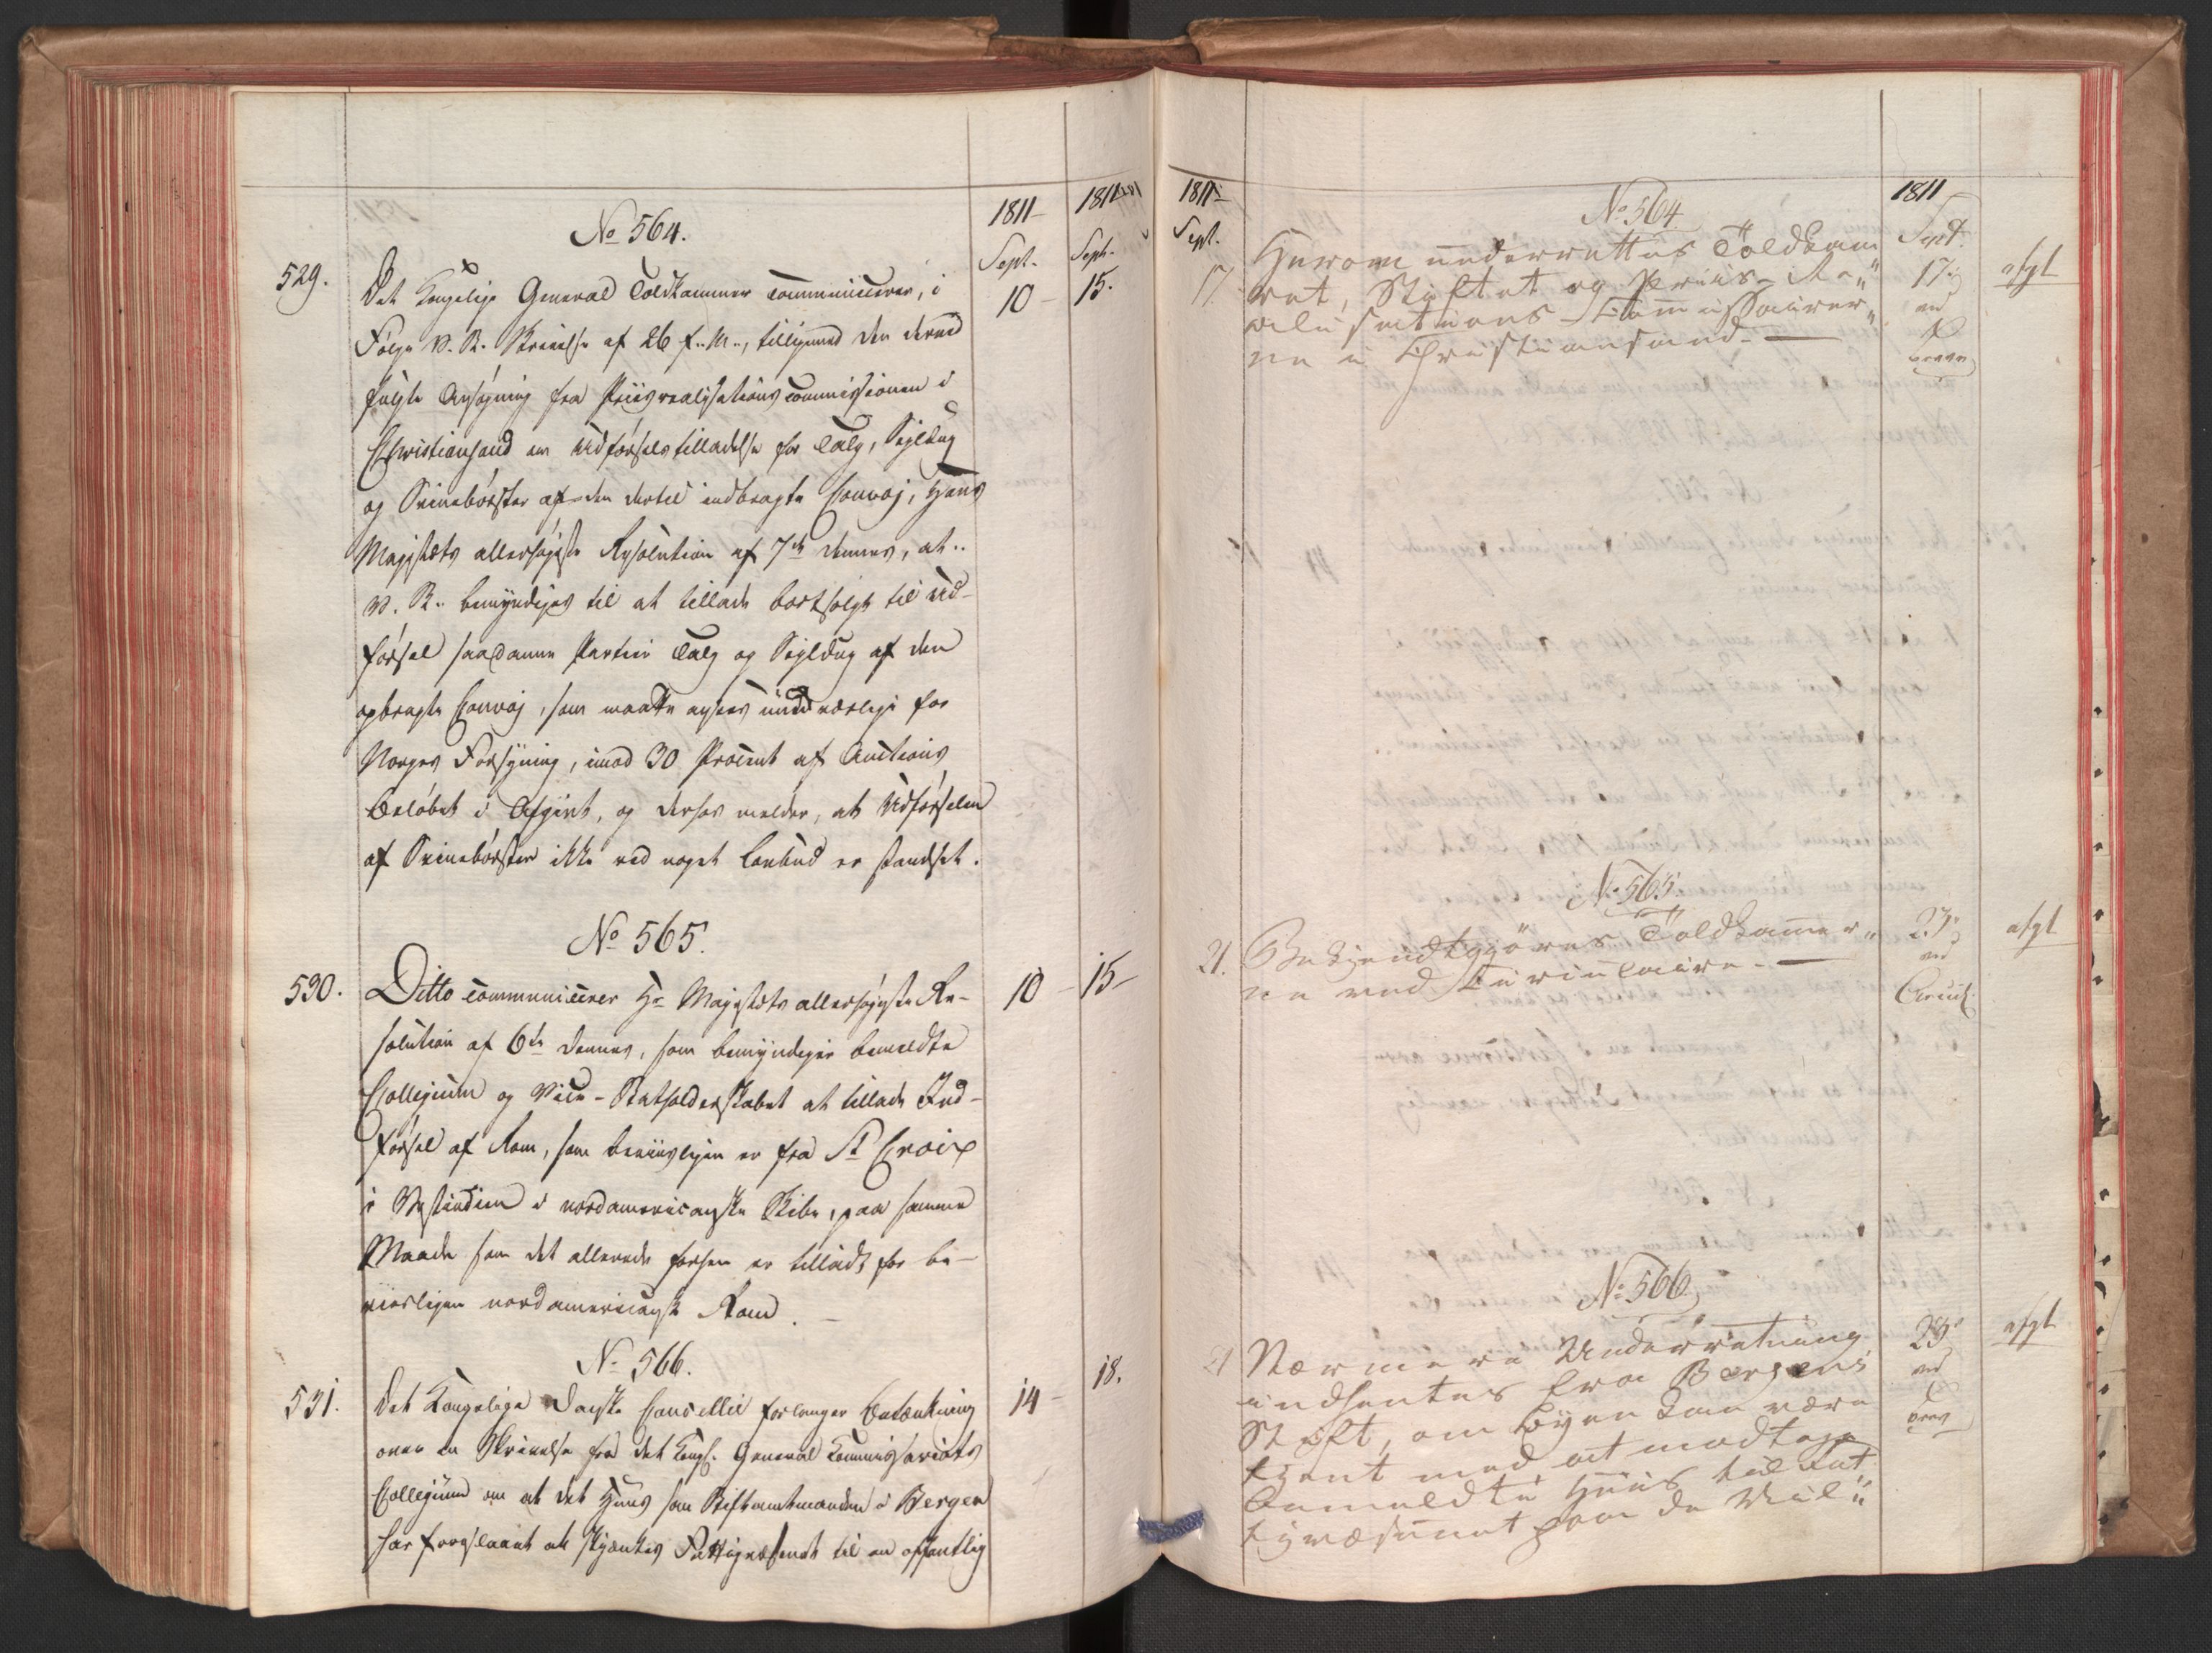 1811
1811
Sept.
Sept.
No 564.
529.
Det Kongelige General Toldkammer communicerer, i
10
15.
Følge V. R. Skrivelse af 26 f. M., tilligemed den derved
fulgte Ansøgning fra Priisrealisationscommissionen i
Christiansand om Udførselstilladelse for Talg, Sejldug
og Svinebørster af den dertil indbragte Convoj, Hans
Majestæts allerhøjeste Resolution af 7de dennes, at
V. R. bemyndiges til at tillade bortsolgt til Ud-
førsel saadanne Partier Talg og Sejldug af den
opbragte Convoj, som maatte ansees undværlige for
Norges Forsyning, imod 30 Procent af Auctions
Beløbet i Afgivt, og derhos melder, at Udførselen
af Svinebørster ikke ved noget Lovbud er standset.
No 565.
530.
Ditto communicerer Hs Majestæts allerhøjeste Re-
10
15
solution af 6te dennes, som bemyndiger bemeldte
Collegium og Vice-Statholderskabet at tillade Ind-
førsel af Rom, som beviisligen er fra St Croix
i Vestindien i nordamericanske Skibe, paa samme
Maade som det allerede forhen er tilladt for be-
viisligen nordamericansk Rom.
No 566.
531.
Det Kongelige Danske Cancellie forlanger Betænkning
14
18.
over en Skrivelse fra det Kongl. General Commissariats
Collegium om at det Huus som Stiftamtmanden i Bergen
har foreslaaet at skjænkes Fattigvæsenet til en offentlig
1811
Sept.
1811
Sept.
No 564
17
Herom underrettes Toldkam
17
afgl
ret, Stiftet og Priis-Re
alisations-Commissairer
ne i Christiansand.
No 565
21.
Bekjendtgjøres Toldkammer
23
afgl
ne ved Circulaire.
No 566
21
Nærmere Underretning
23
afgl
indhentes fra Bergens
Stift, om Byen kan være
tjent med at modtage
bemeldte Huus til Fat
tigvæsenet paa de Vil